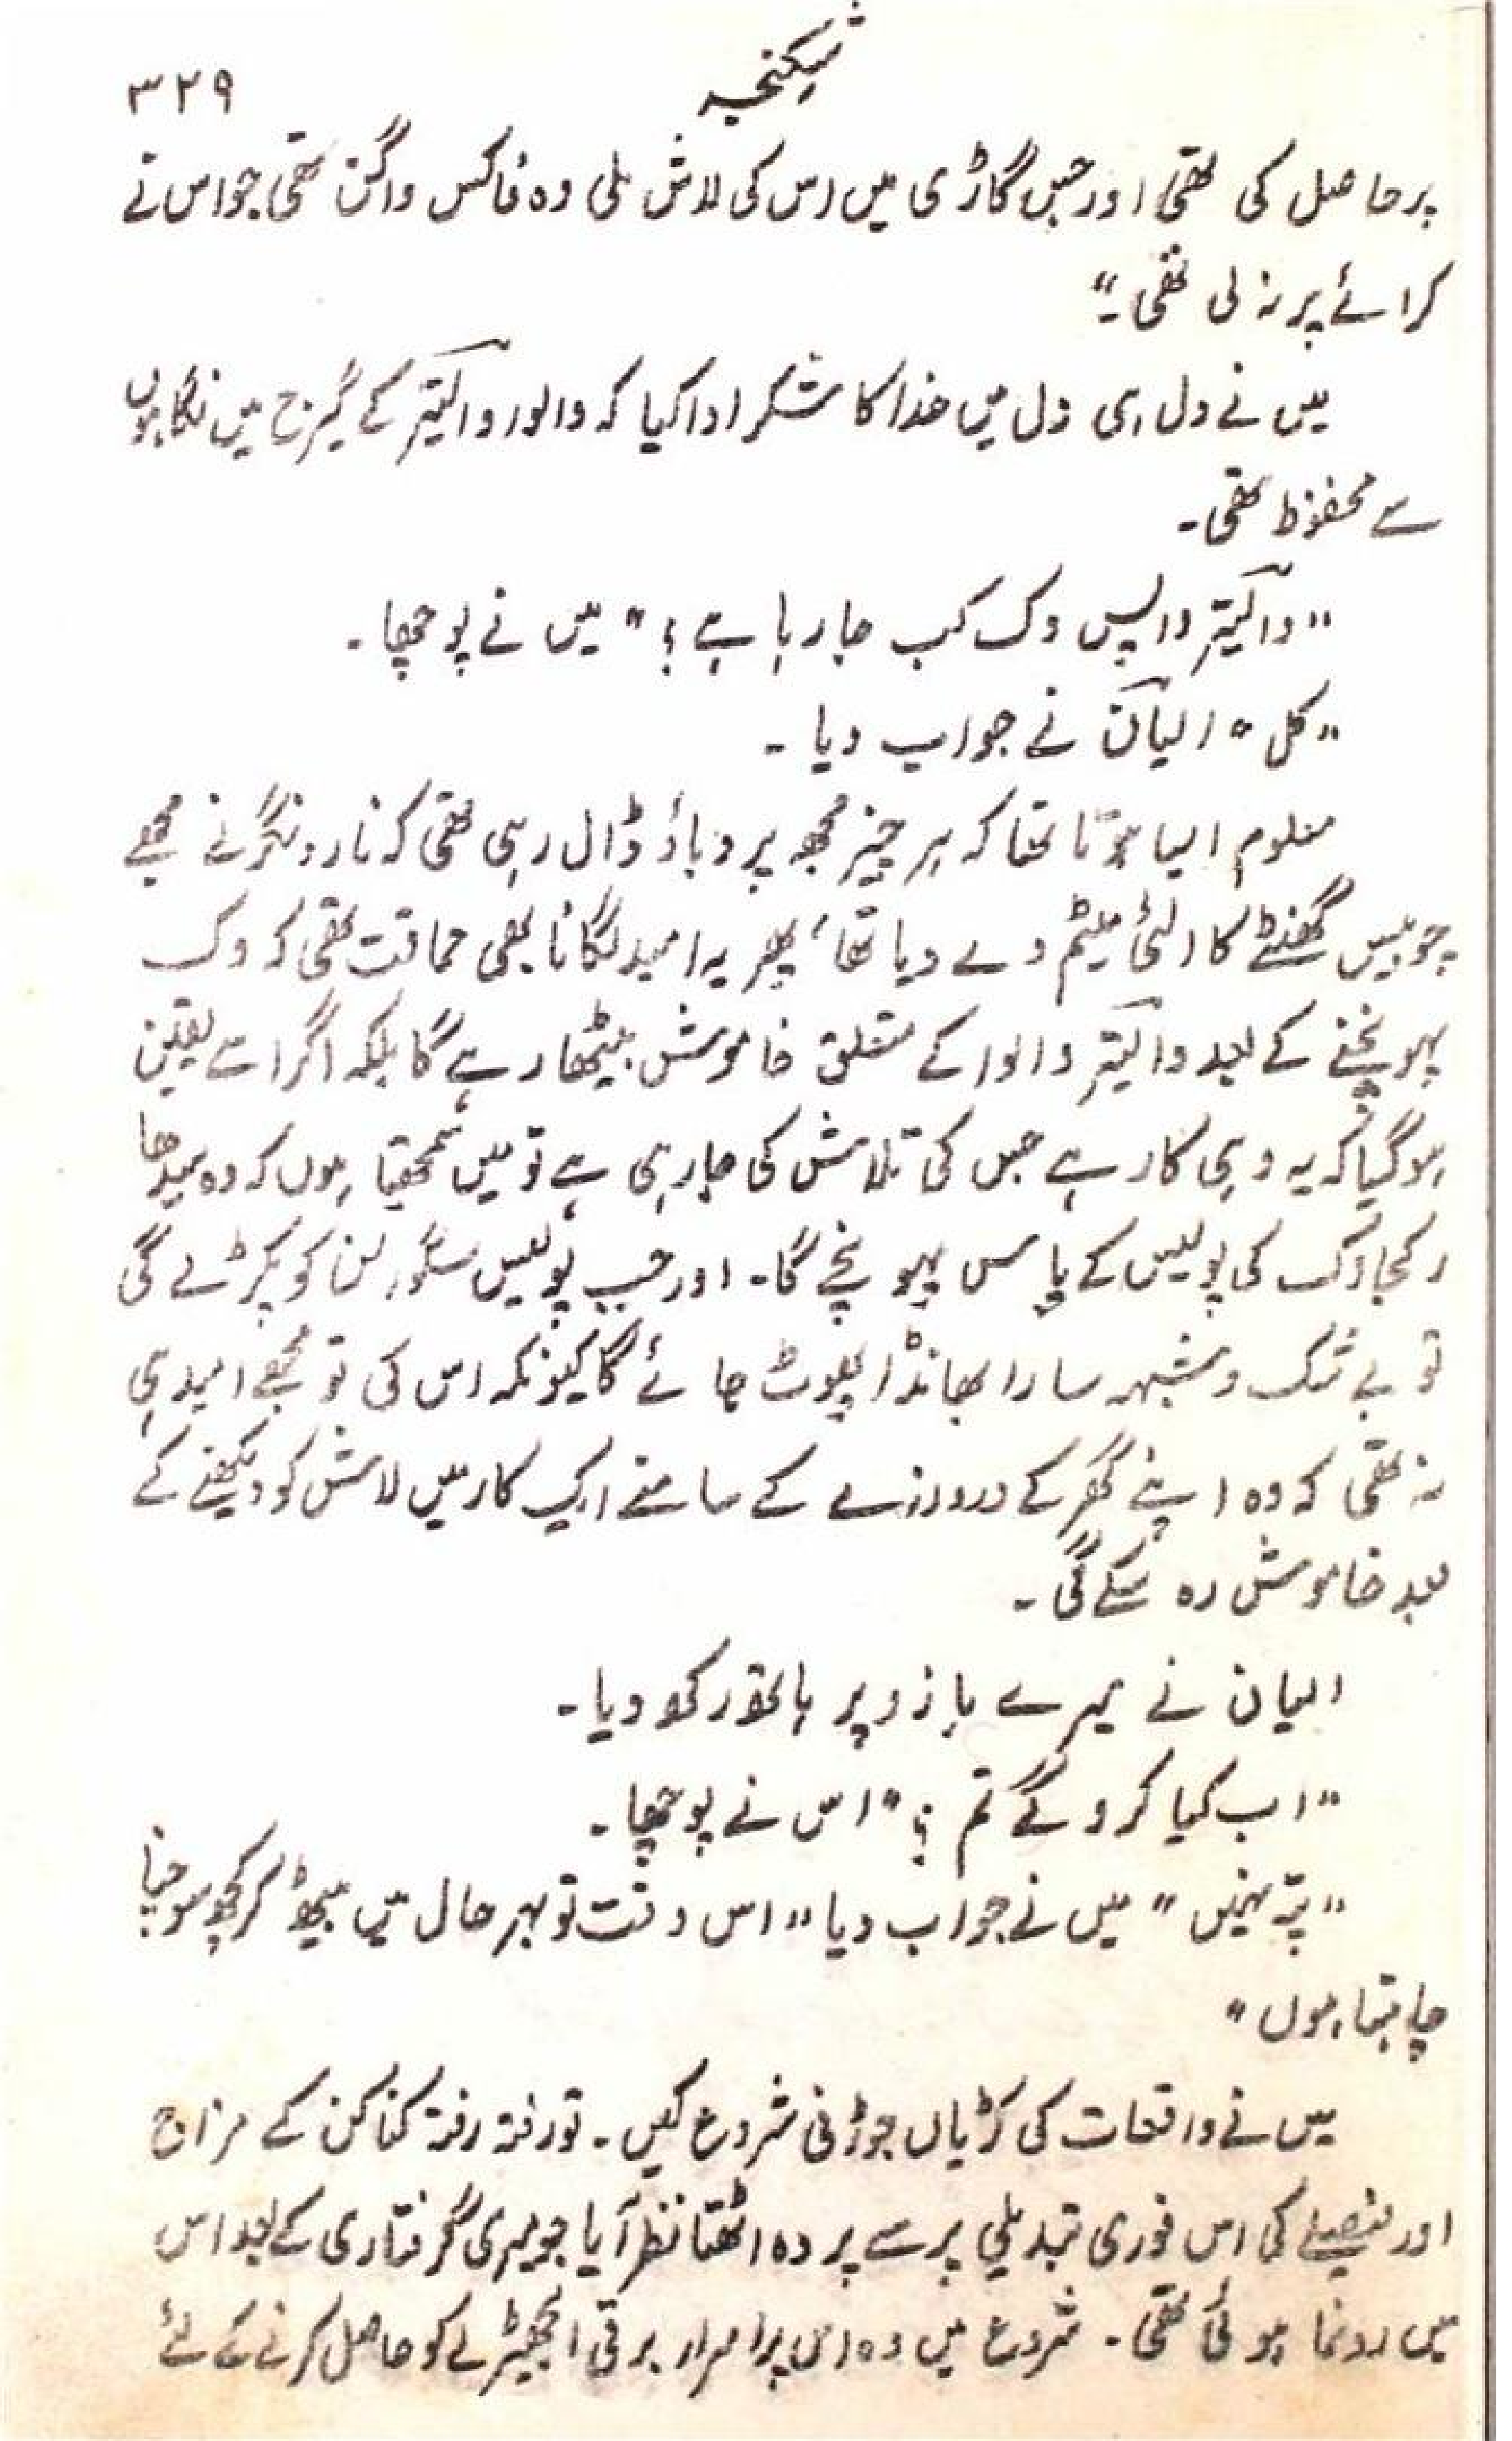 شکنجہ
۳۲۹
پر حاصل کی تھی اور جس گاڑی میں اس کی لاش ملی وہ فاکس واگن تھی جو اس نے
کرائے پر نہ لی تھی۔"
میں نے دل ہی دل میں خدا کا شکر ادا کیا کہ والوا وا کیتر کے گیرج میں نگاہوں
سے محفوظ تھی۔
"وا کیتر واپس وک کب جا رہا ہے؟" میں نے پوچھا۔
"کل" الیان نے جواب دیا۔
معلوم ایسا ہوتا تھا کہ ہر چیز مجھ پر دباؤ ڈال رہی تھی کہ نارونگر نے مجھے
چوبیس گھنٹے کا الٹی میٹم دے دیا تھا، پھر یہ امید لگانا بھی حماقت تھی کہ وک
پہونچنے کے بعد وا کیتر والوا کے متعلق خاموش بیٹھا رہے گا بلکہ اگر اسے یقین
ہو گیا کہ یہ وہی کار ہے جس کی تلاش کی جا رہی ہے تو میں سمجھتا ہوں کہ وہ سیدھا
رکجاوک کی پولیس کے پاس پہونچے گا۔ اور جب پولیس سگورلن کو پکڑے گی
تو بے شک و شبہہ سارا بھانڈا پھوٹ جائے گا کیونکہ اس کی تو مجھے امید ہی
نہ تھی کہ وہ اپنے گھر کے دروازے کے سامنے ایک کار میں لاش کو دیکھنے کے
بعد خاموش رہ سکے گی۔
الیان نے میرے بازو پر ہاتھ رکھ دیا۔
"اب کیا کرو گے تم؟" اس نے پوچھا۔
"پتہ نہیں" میں نے جواب دیا "اس وقت تو بہر حال میں بیٹھ کر کچھ سوچنا
چاہتا ہوں"
میں نے واقعات کی کڑیاں جوڑنی شروع کیں۔ تو رفتہ رفتہ کناکن کے مزاج
اور فیصلے کی اس فوری تبدیلی پر سے پردہ اٹھتا نظر آیا جو میری گرفتاری کے بعد اس
میں رونما ہوئی تھی۔ شروع میں وہ اس پراسرار برقی الجھیڑے کو حاصل کرنے کے لئے